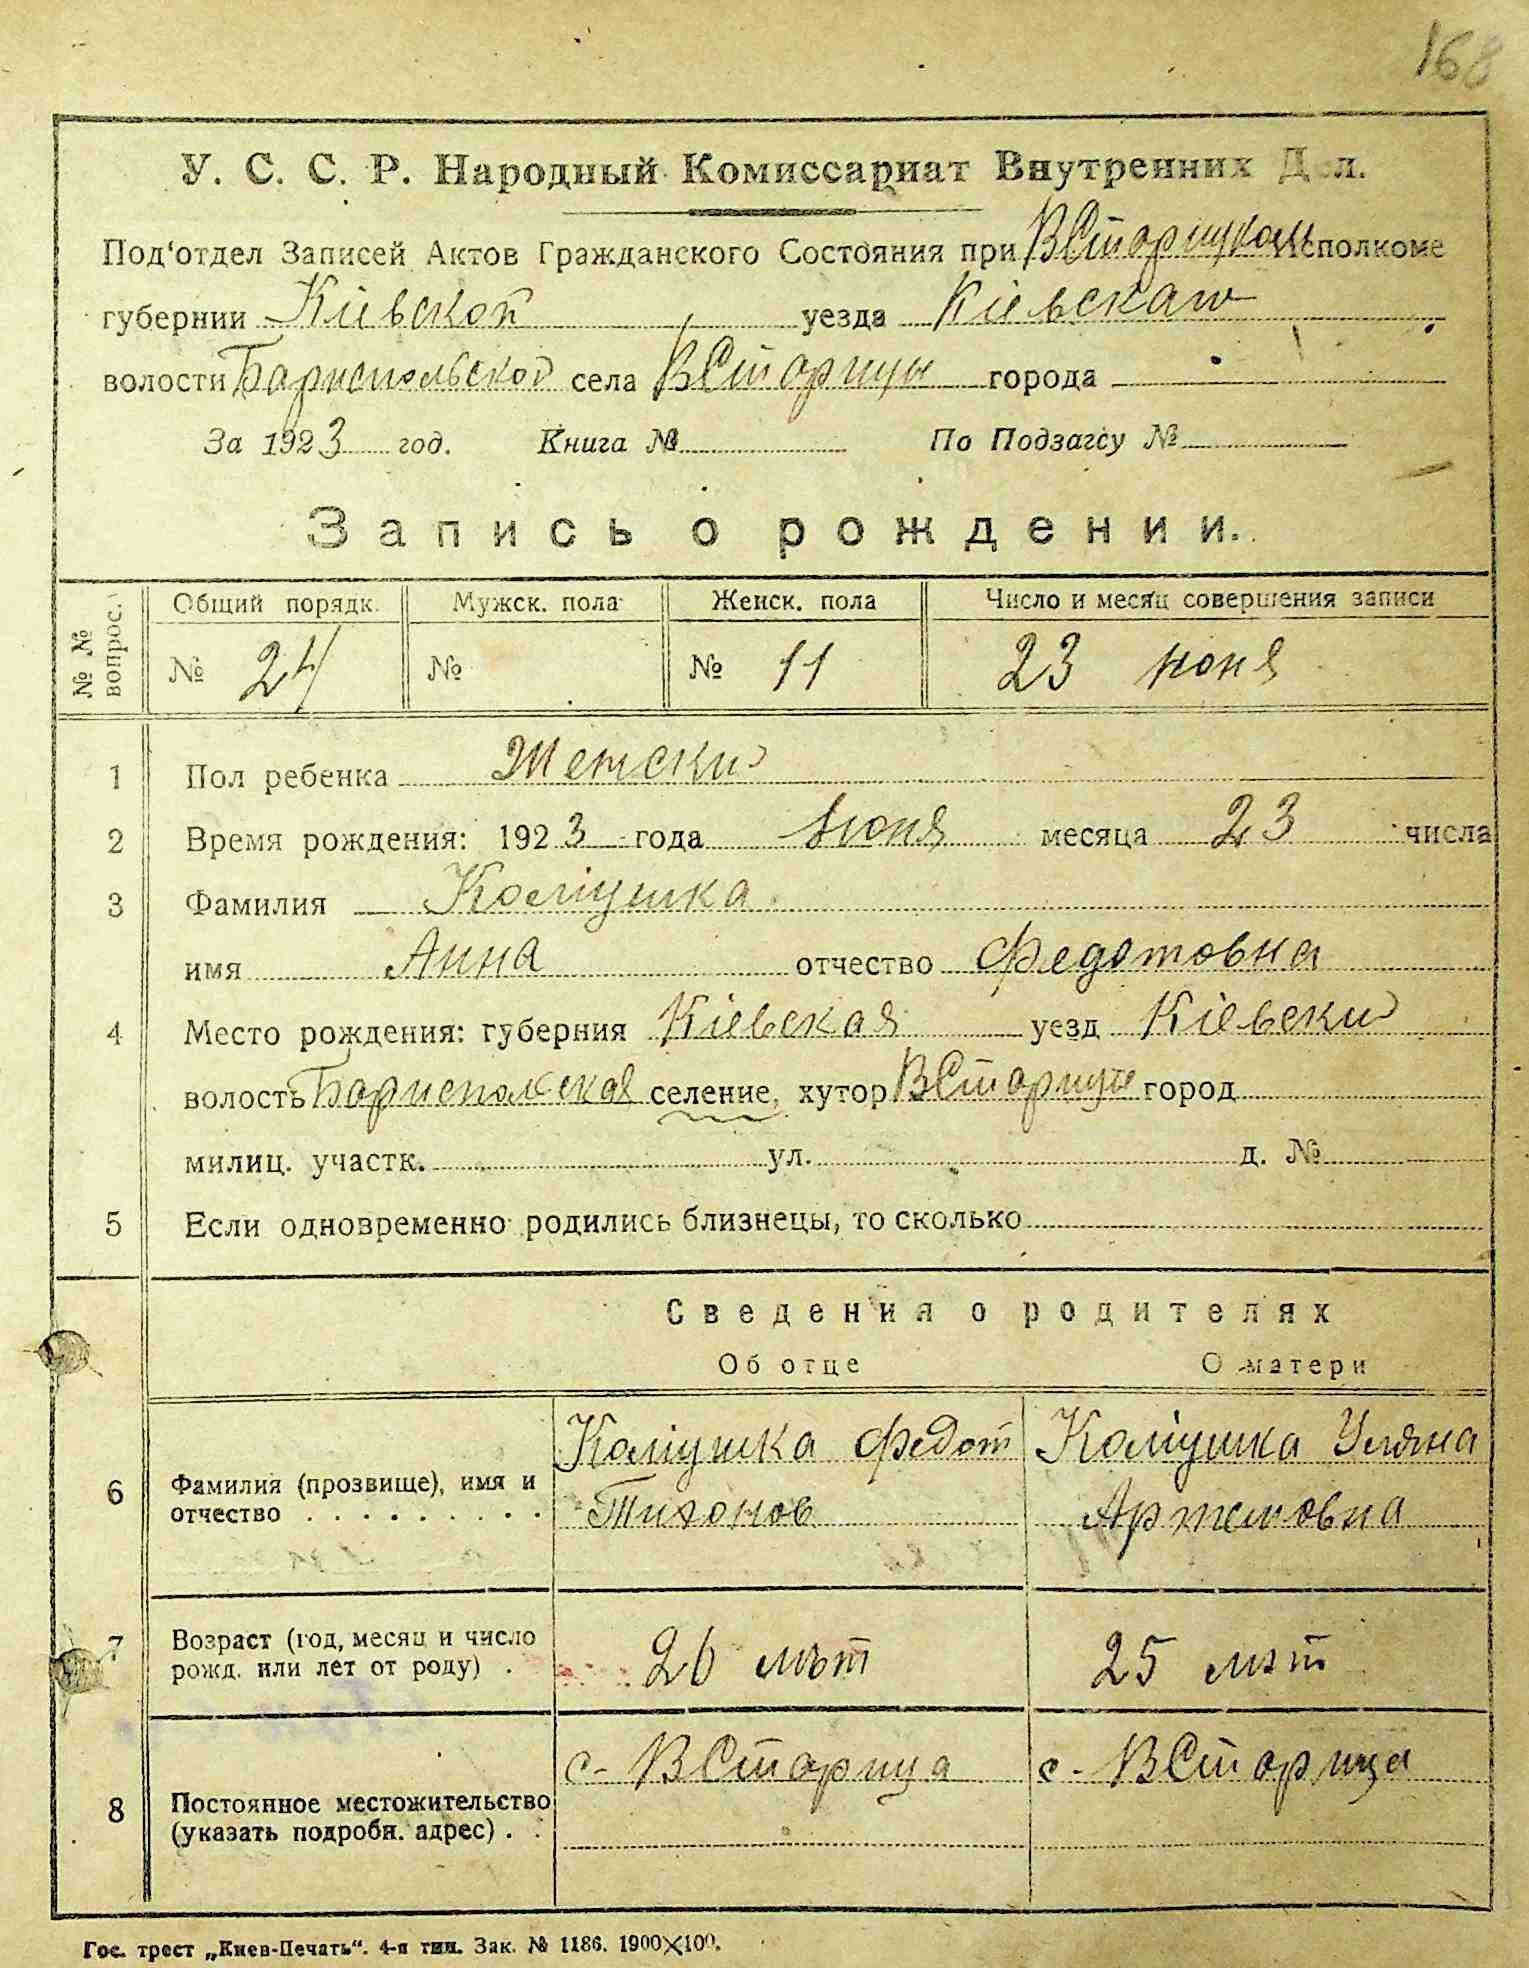 168
У. С. С. Р. Народный Комиссариат Внутренних Дел.
Под‘отдел Записей Актов Гражданского Состояния при ВСтарицком Исполкоме
губернии Кіевской уезда Кіевскаго
волости Бариспольской села ВСтарицы города
За 1923 год. Книга № По Подзагсу №
Запись о рождении.
№ № вопрос. Общий порядк. Мужск. пола Женск. пола Число и месяц совершения записи
№ 24 № № 11 23 июня
1 Пол ребенка Женский
2 Время рождения: 1923 года Июня месяца 23 числа
3 Фамилия
имя Анна отчество Федотовна
4 Место рождения: губерния Кіевская уезд Кіевски
волость Бариспольская селение, хутор ВСтарицы город
милиц. участк. ул. д. №
5 Если одновременно родились близнецы, то сколько
Сведения о родителях
Об отце О матери
6 Фамилия (прозвище), имя и отчество . . . . . . . . . Федот Тихонов Уляна Артемовна
7 Возраст (год, месяц и число рожд. или лет от роду) . 26 лѣт 25 лѣт
8 Постоянное местожительство (указать подробн. адрес) . . с- ВСтарица с- ВСтарица
Гос. трест „Киев-Печать“. 4-я тип. Зак. № 1186. 1900×100.